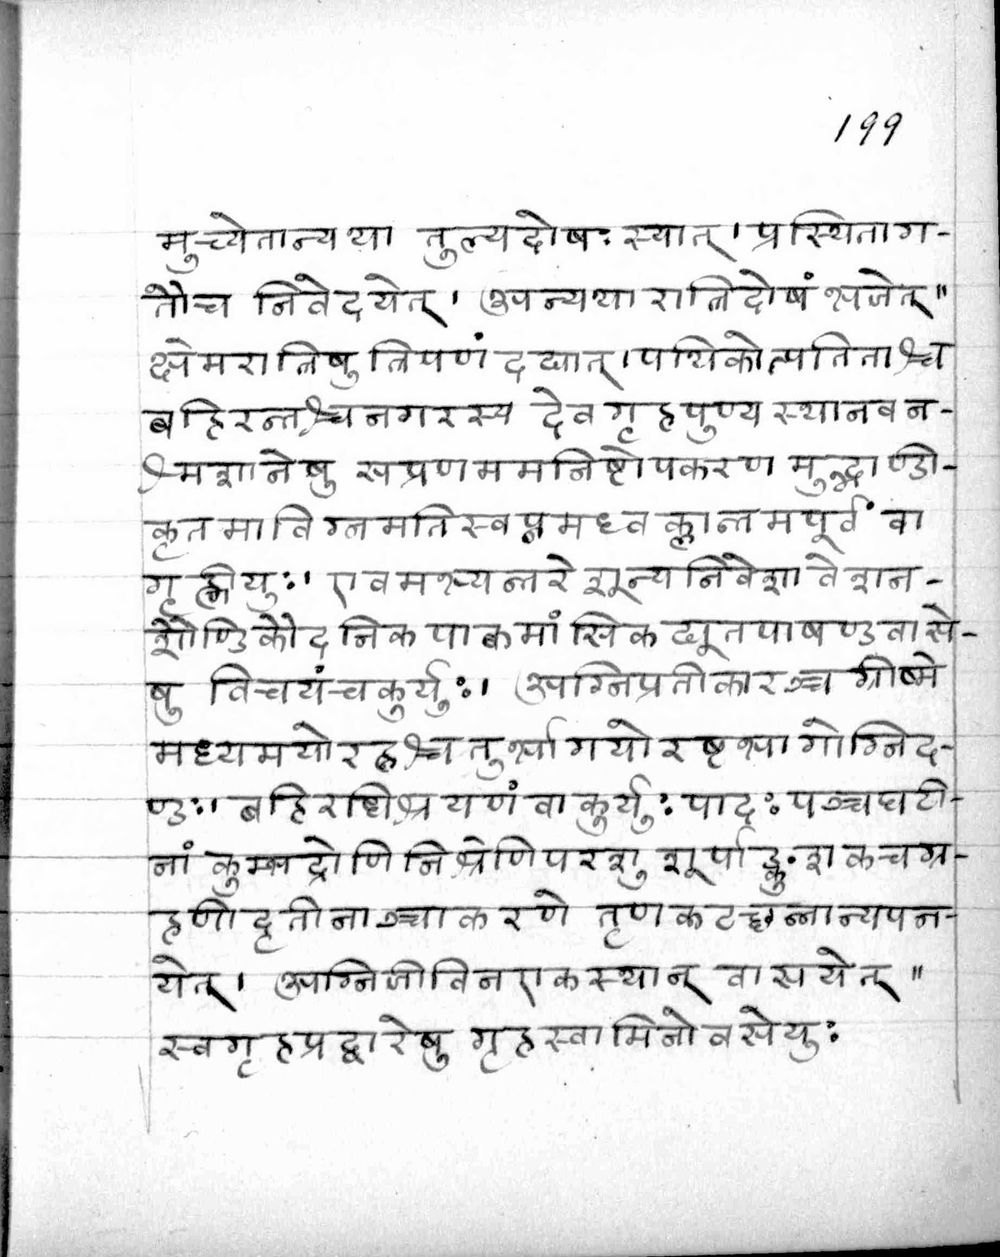 199
मुच्येतान्यथा तुल्यदोषः स्यात् । प्रस्थिताग-
तौच निवेदयेत् । अन्यथा रात्रिदोषं भजेत् ॥
क्षेमरात्रिषु त्रिपणं दद्यात् । पथिकोत्पतिताश्च
बहिरन्तश्चनगरस्य देवगृहपुण्यस्थानवन-
श्मशानेषु सप्रणममनिष्टोपकरण मुद्भाण्डी-
कृतमाविग्नमतिस्वप्नमध्वक्लान्तमपूर्वं वा
गृह्णीयुः । एवमभ्यन्तरे शून्यनिवेशावेशन-
शौण्डिकौदनिकपाक्कमांसिकद्यूतपाषण्डवासे-
षु विचयंचकुर्युः । अग्निप्रतीकारञ्च ग्रीष्मे
मध्यमयोरह्नश्चतुर्भागयोरष्टभागोग्निद-
ण्डः । बहिरधिश्रयणं वा कुर्युः पादः पञ्चघटी-
नां कुम्भद्रोणिनिश्रेणिपरशुशूर्पाङ्कुशकचग्र-
हणीदृतीनाञ्चाकरणे तृणकटच्छन्नान्यपन-
येत् । अग्निजीविन एकस्थान् वासयेत् ॥
स्वगृहप्रद्वारेषु गृहस्वामिनो वसेयुः